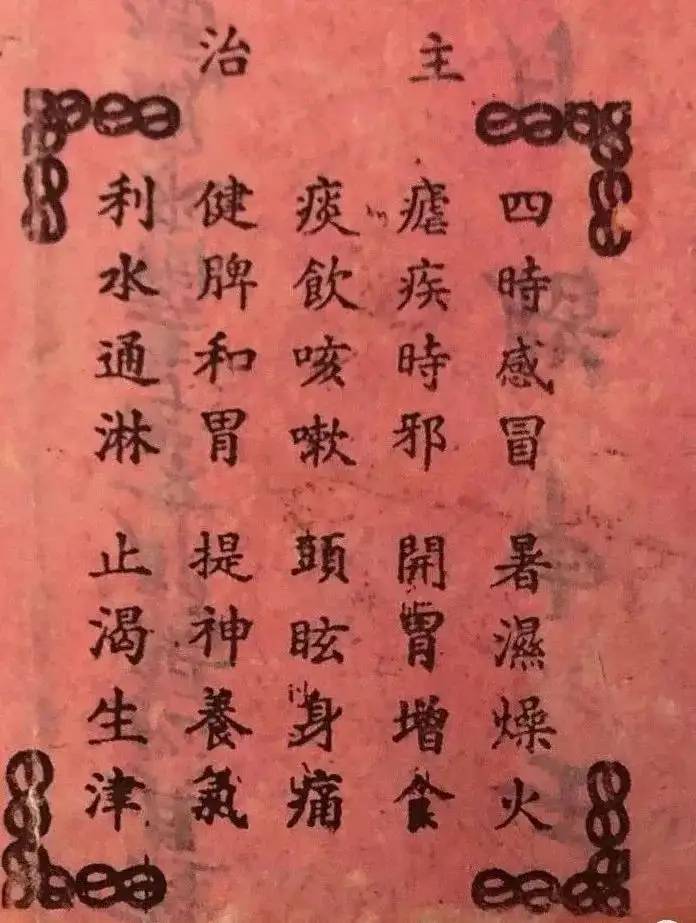 主治
四時感冒 暑濕燥火
瘧疾時邪 開胃增食
痰飲咳嗽 頭眩身痛
健脾和胃 提神養氣
利水通淋 止渴生津